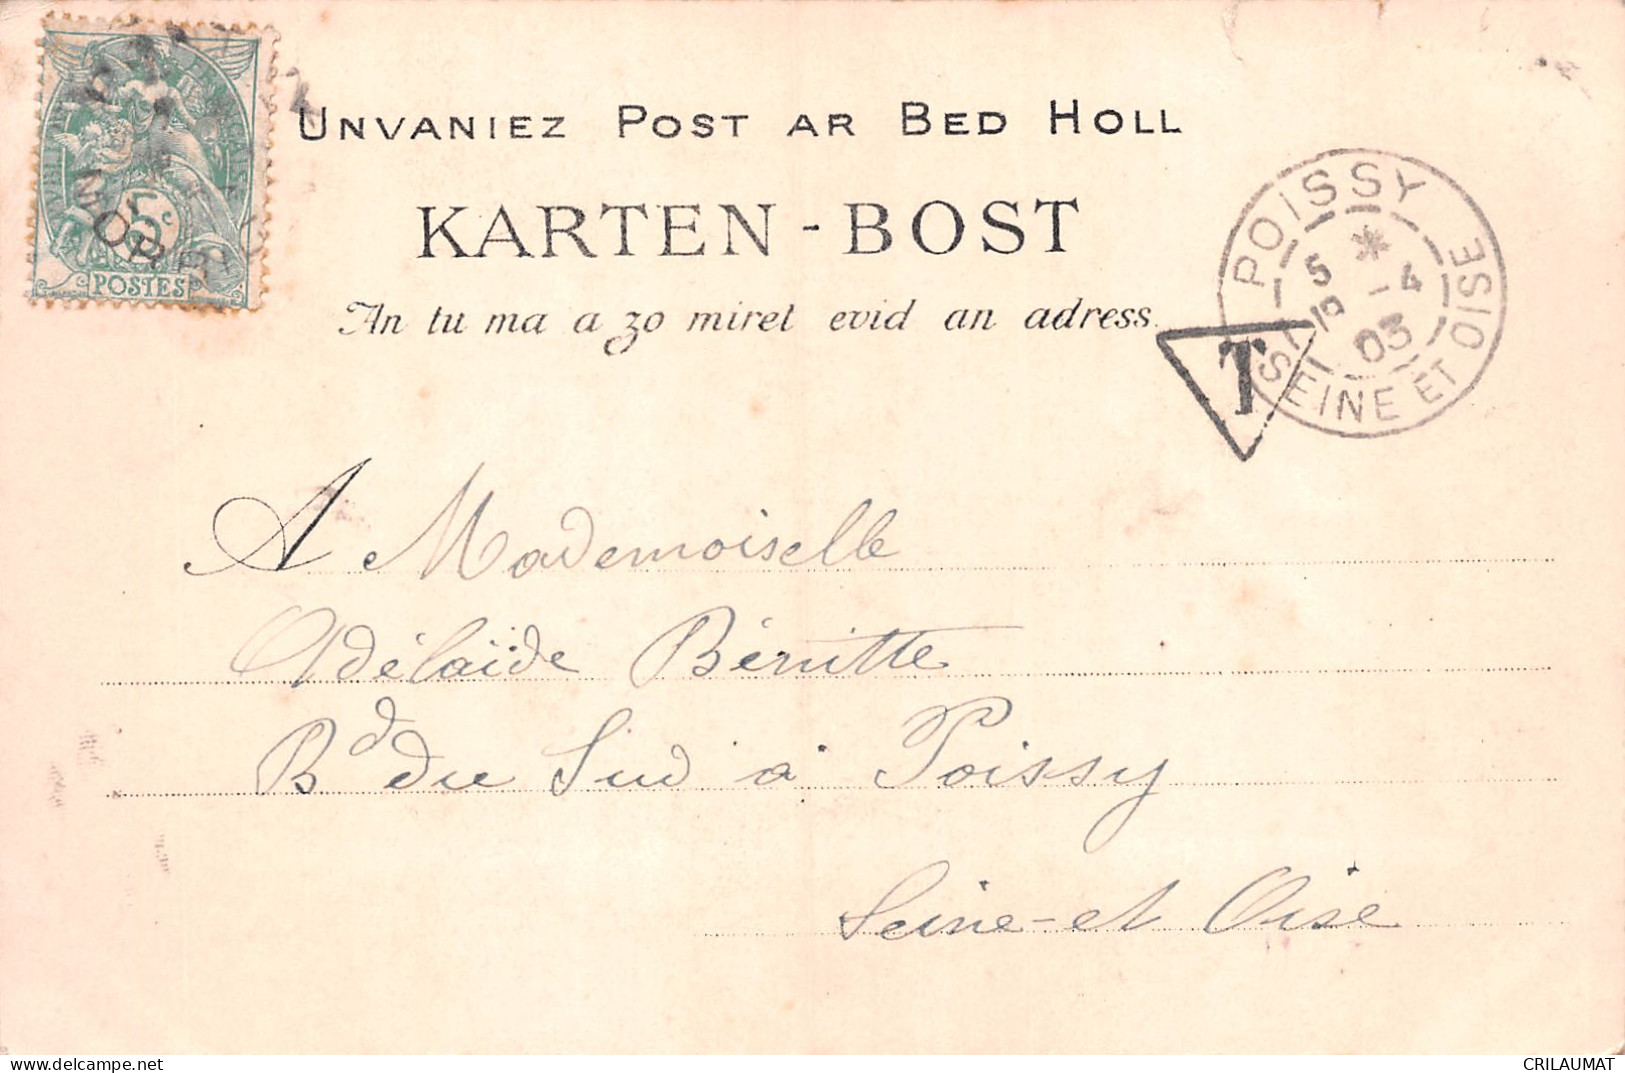 UNVANIEZ POST AR BED HOLL
KARTEN-BOST
An tu ma a zo miret evid an adress.
5c
POSTES
MOR
POISSY
5 - 4
03
SEINE ET OISE
T
A Mademoiselle
Adélaïde Bénitte
Bd du Sud à Poissy
Seine-et Oise
CRILAUMAT